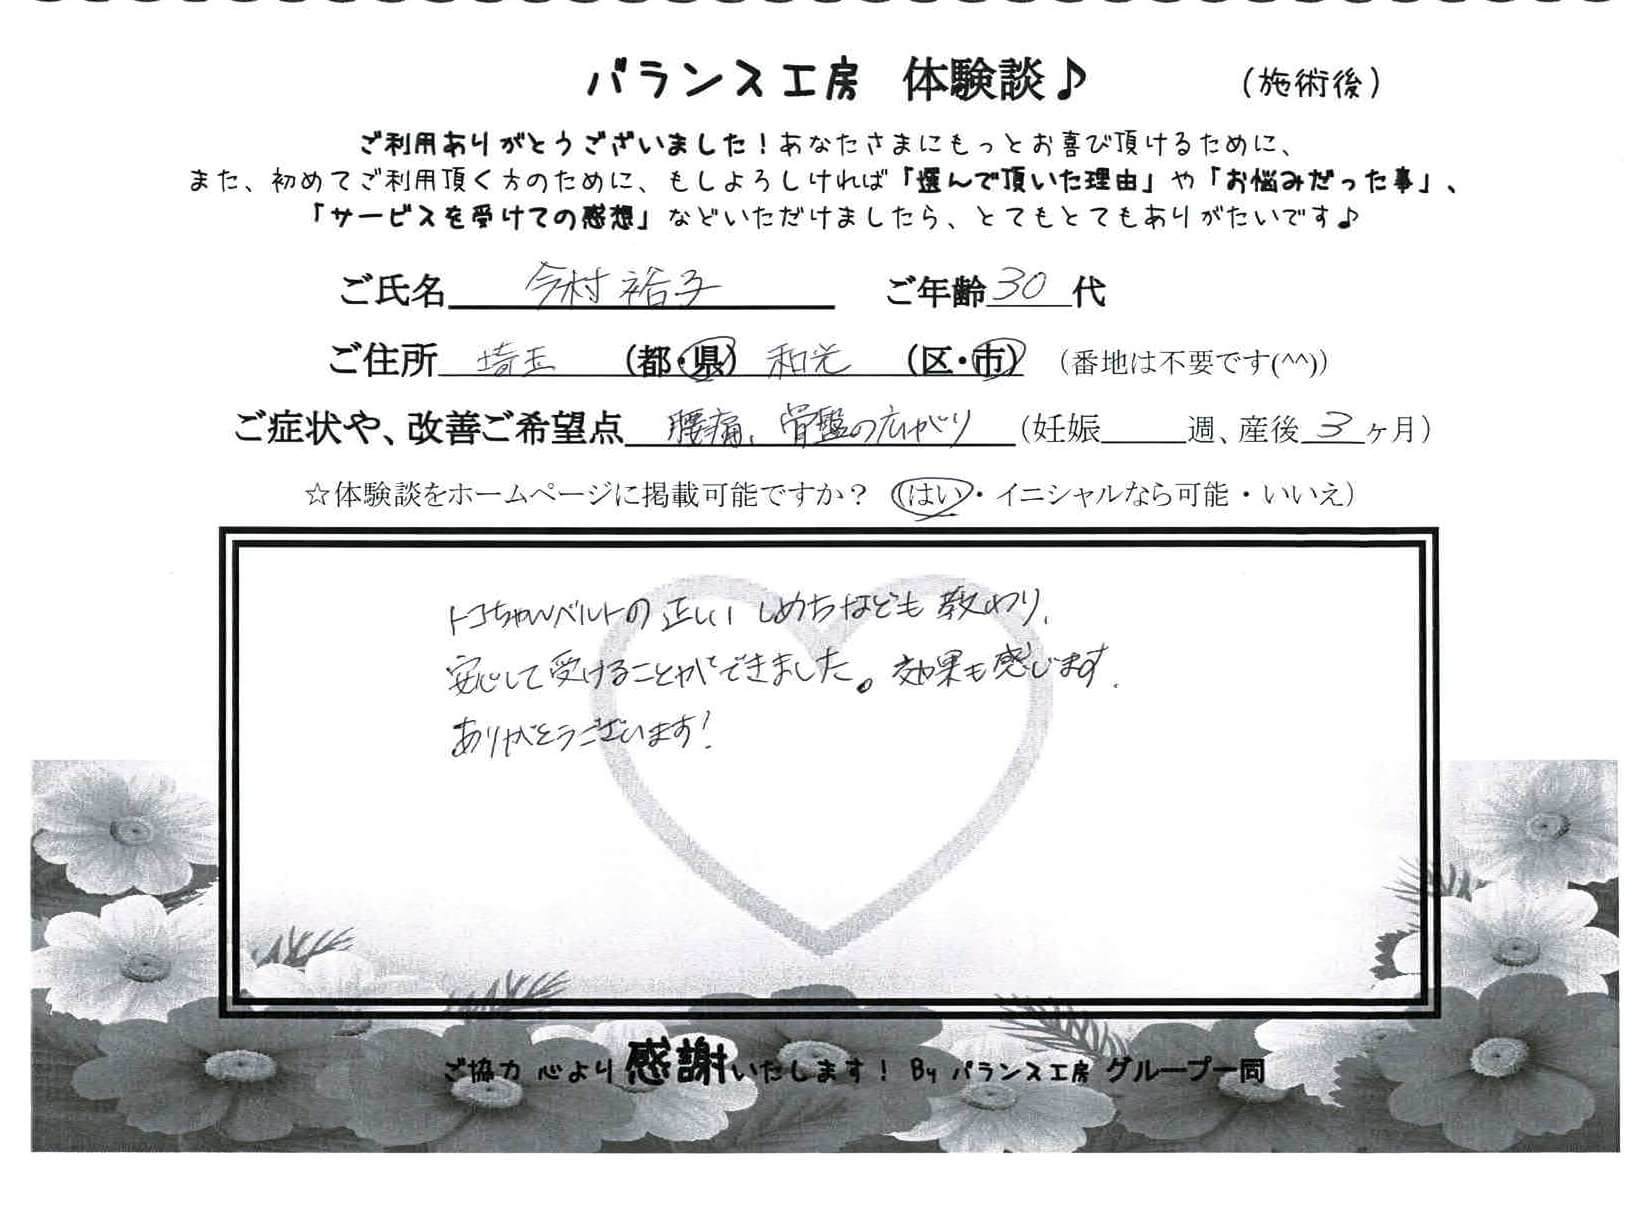 バランス工房 体験談♪ （施術後）
ご利用ありがとうございました！あなたさまにもっとお喜び頂けるために、
また、初めてご利用頂く方のために、もしよろしければ「選んで頂いた理由」や「お悩みだった事」、
「サービスを受けての感想」などいただけましたら、とてもとてもありがたいです♪
ご氏名 今村 裕子 ご年齢 30 代
ご住所 埼玉 （都・県） 和光 （区・市） （番地は不要です(^^)）
ご症状や、改善ご希望点 腰痛、骨盤の広がり （妊娠 週、産後 3 ヶ月）
☆体験談をホームページに掲載可能ですか？ （はい・イニシャルなら可能・いいえ）
トコちゃんベルトの正しいしめ方なども教わり、
安心して受けることができました。効果も感じます。
ありがとうございます！
ご協力 心より感謝いたします！ By バランス工房 グループ一同